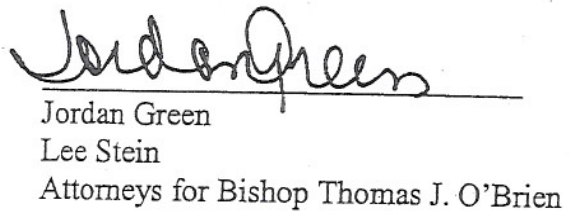 Jordan Green
Jordan Green
Lee Stein
Attorneys for Bishop Thomas J. O'Brien